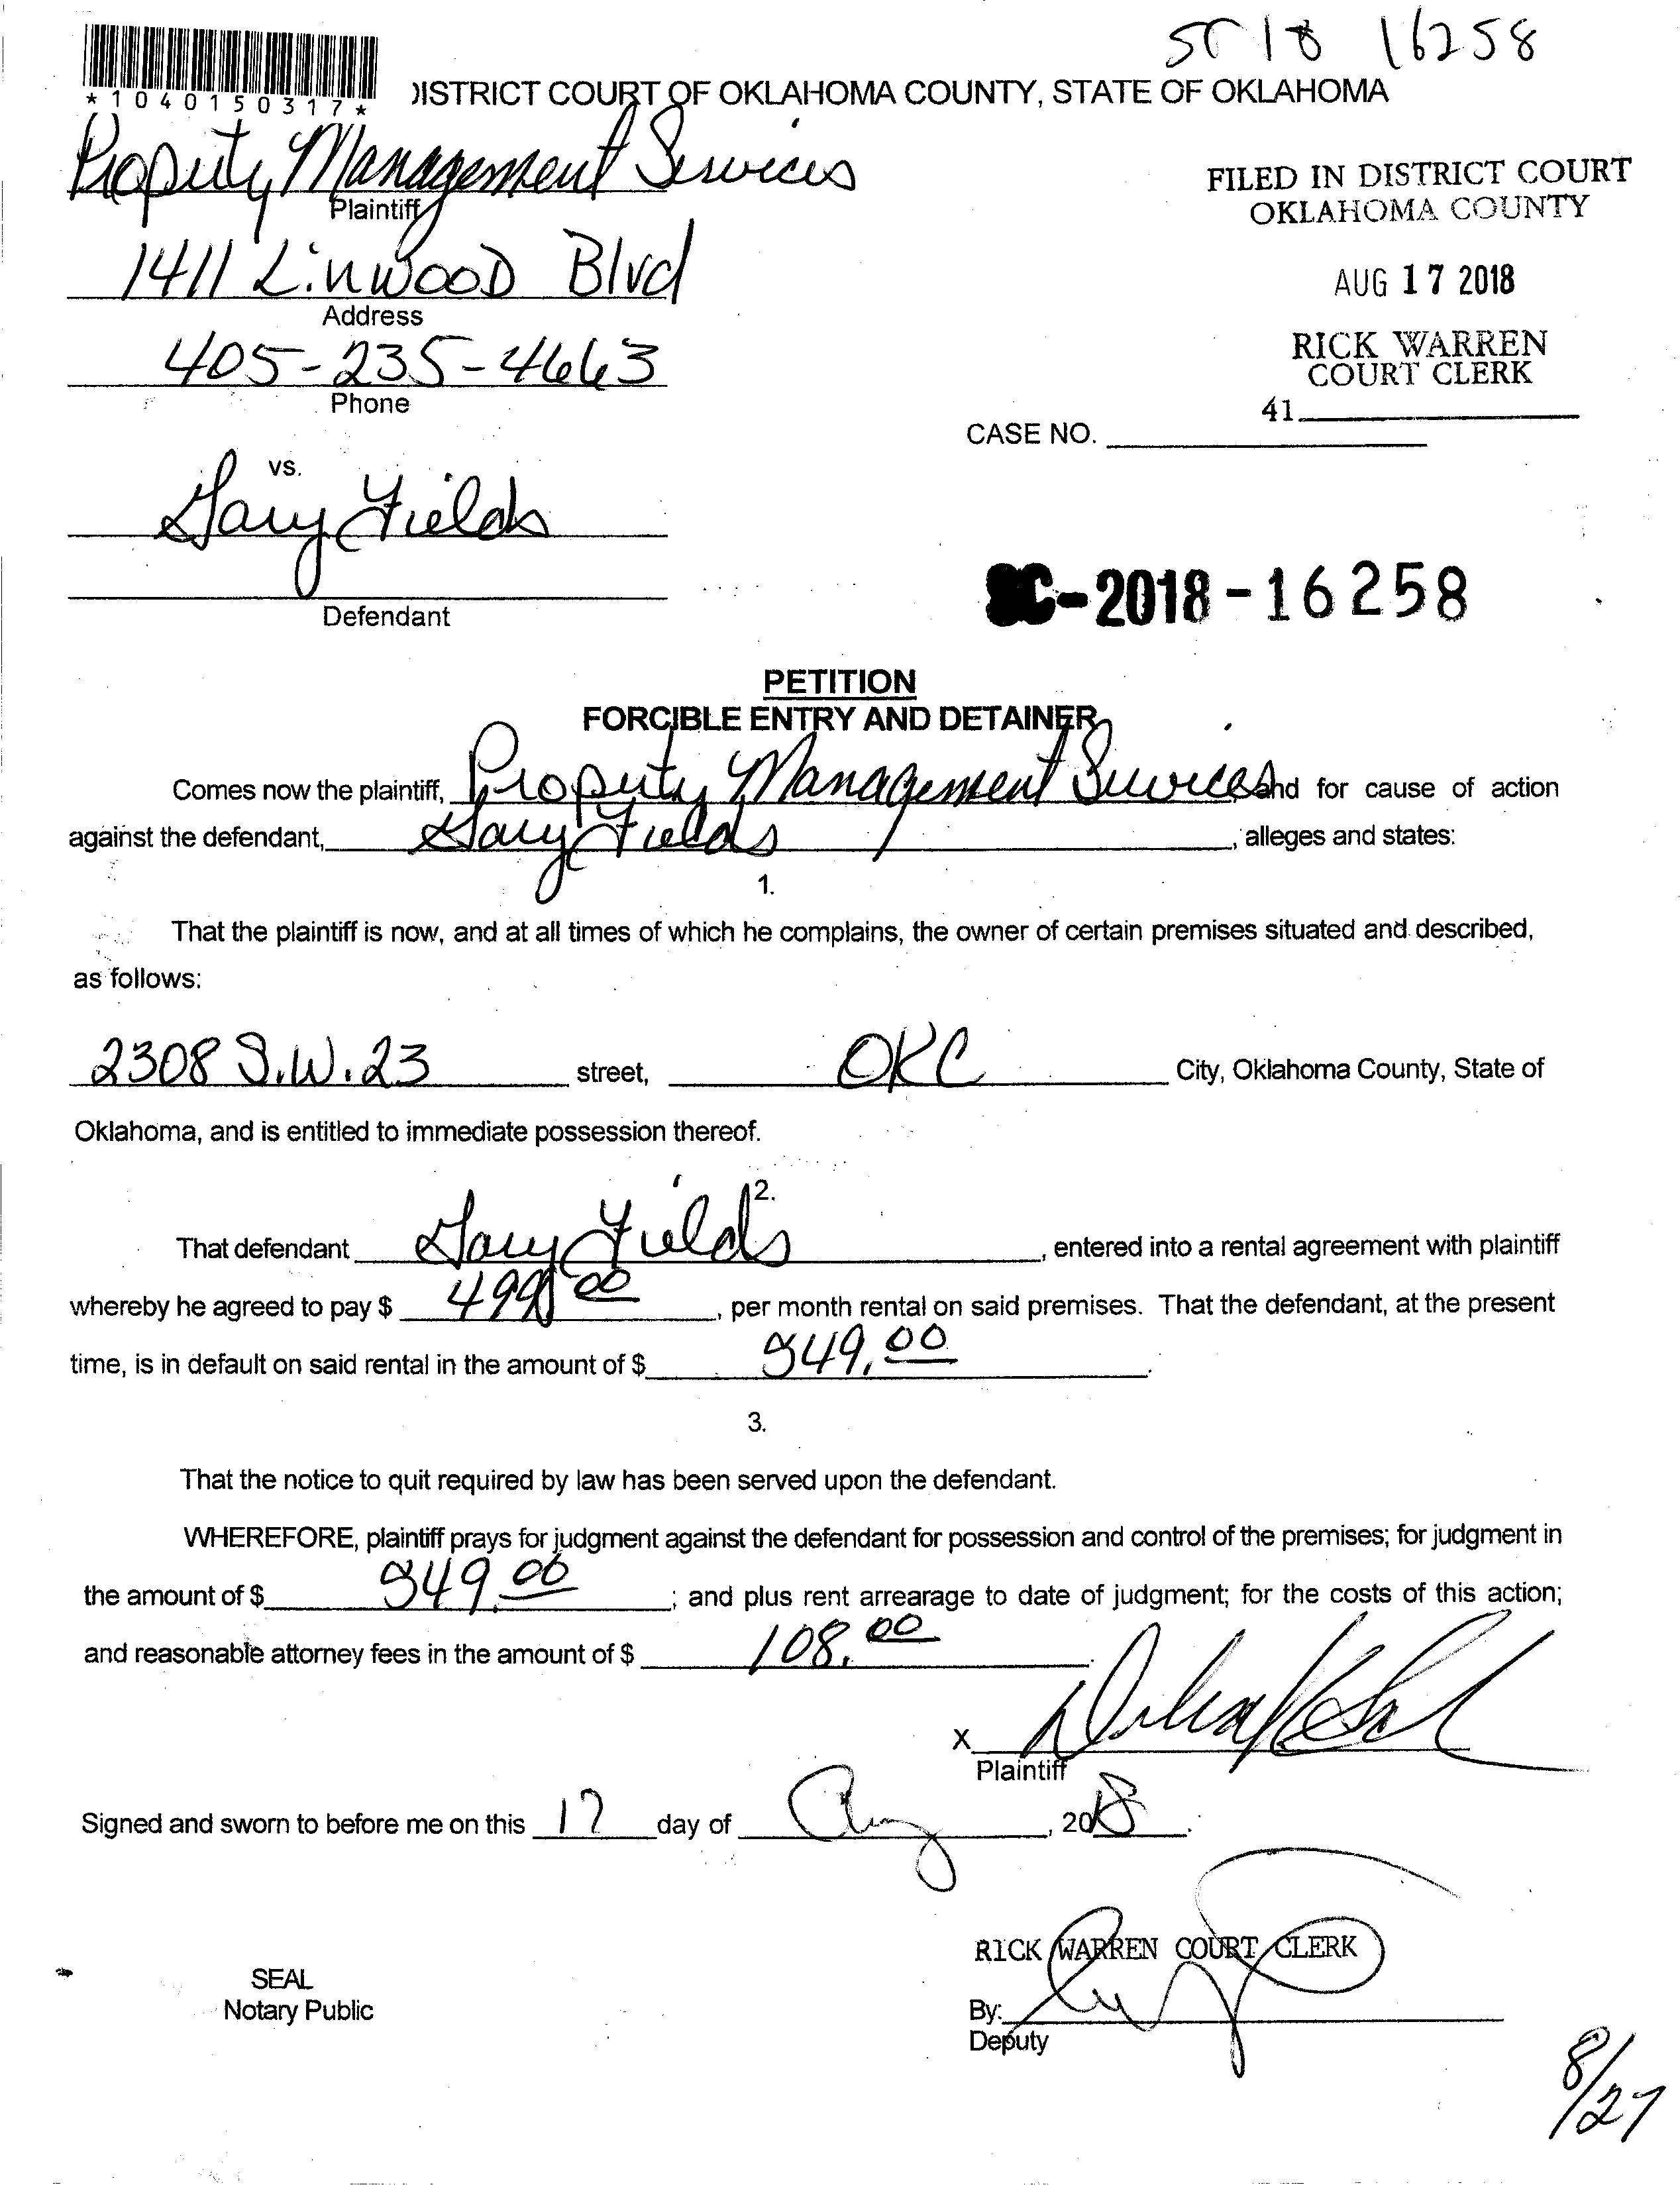 SC 18 16258
*1040150317*
DISTRICT COURT OF OKLAHOMA COUNTY, STATE OF OKLAHOMA
Property Management Services
Plaintiff
FILED IN DISTRICT COURT
OKLAHOMA COUNTY
1411 Linwood Blvd
Address
AUG 17 2018
405-235-4663
Phone
RICK WARREN
COURT CLERK
41
CASE NO.
vs.
Gary Fields
Defendant
SC-2018-16258
PETITION
FORCIBLE ENTRY AND DETAINER
Comes now the plaintiff, Property Management Services and for cause of action
against the defendant, Gary Fields, alleges and states:
1.
That the plaintiff is now, and at all times of which he complains, the owner of certain premises situated and described,
as follows:
2308 S.W. 23 street, OKC City, Oklahoma County, State of
Oklahoma, and is entitled to immediate possession thereof.
2.
That defendant Gary Fields, entered into a rental agreement with plaintiff
whereby he agreed to pay $ 499 00, per month rental on said premises. That the defendant, at the present
time, is in default on said rental in the amount of $ 549.00.
3.
That the notice to quit required by law has been served upon the defendant.
WHEREFORE, plaintiff prays for judgment against the defendant for possession and control of the premises; for judgment in
the amount of $ 549.00; and plus rent arrearage to date of judgment; for the costs of this action;
and reasonable attorney fees in the amount of $ 108.00.
X
Plaintiff
Signed and sworn to before me on this 17 day of Aug, 2018.
RICK WARREN COURT CLERK
SEAL
Notary Public
By:
Deputy
8/27